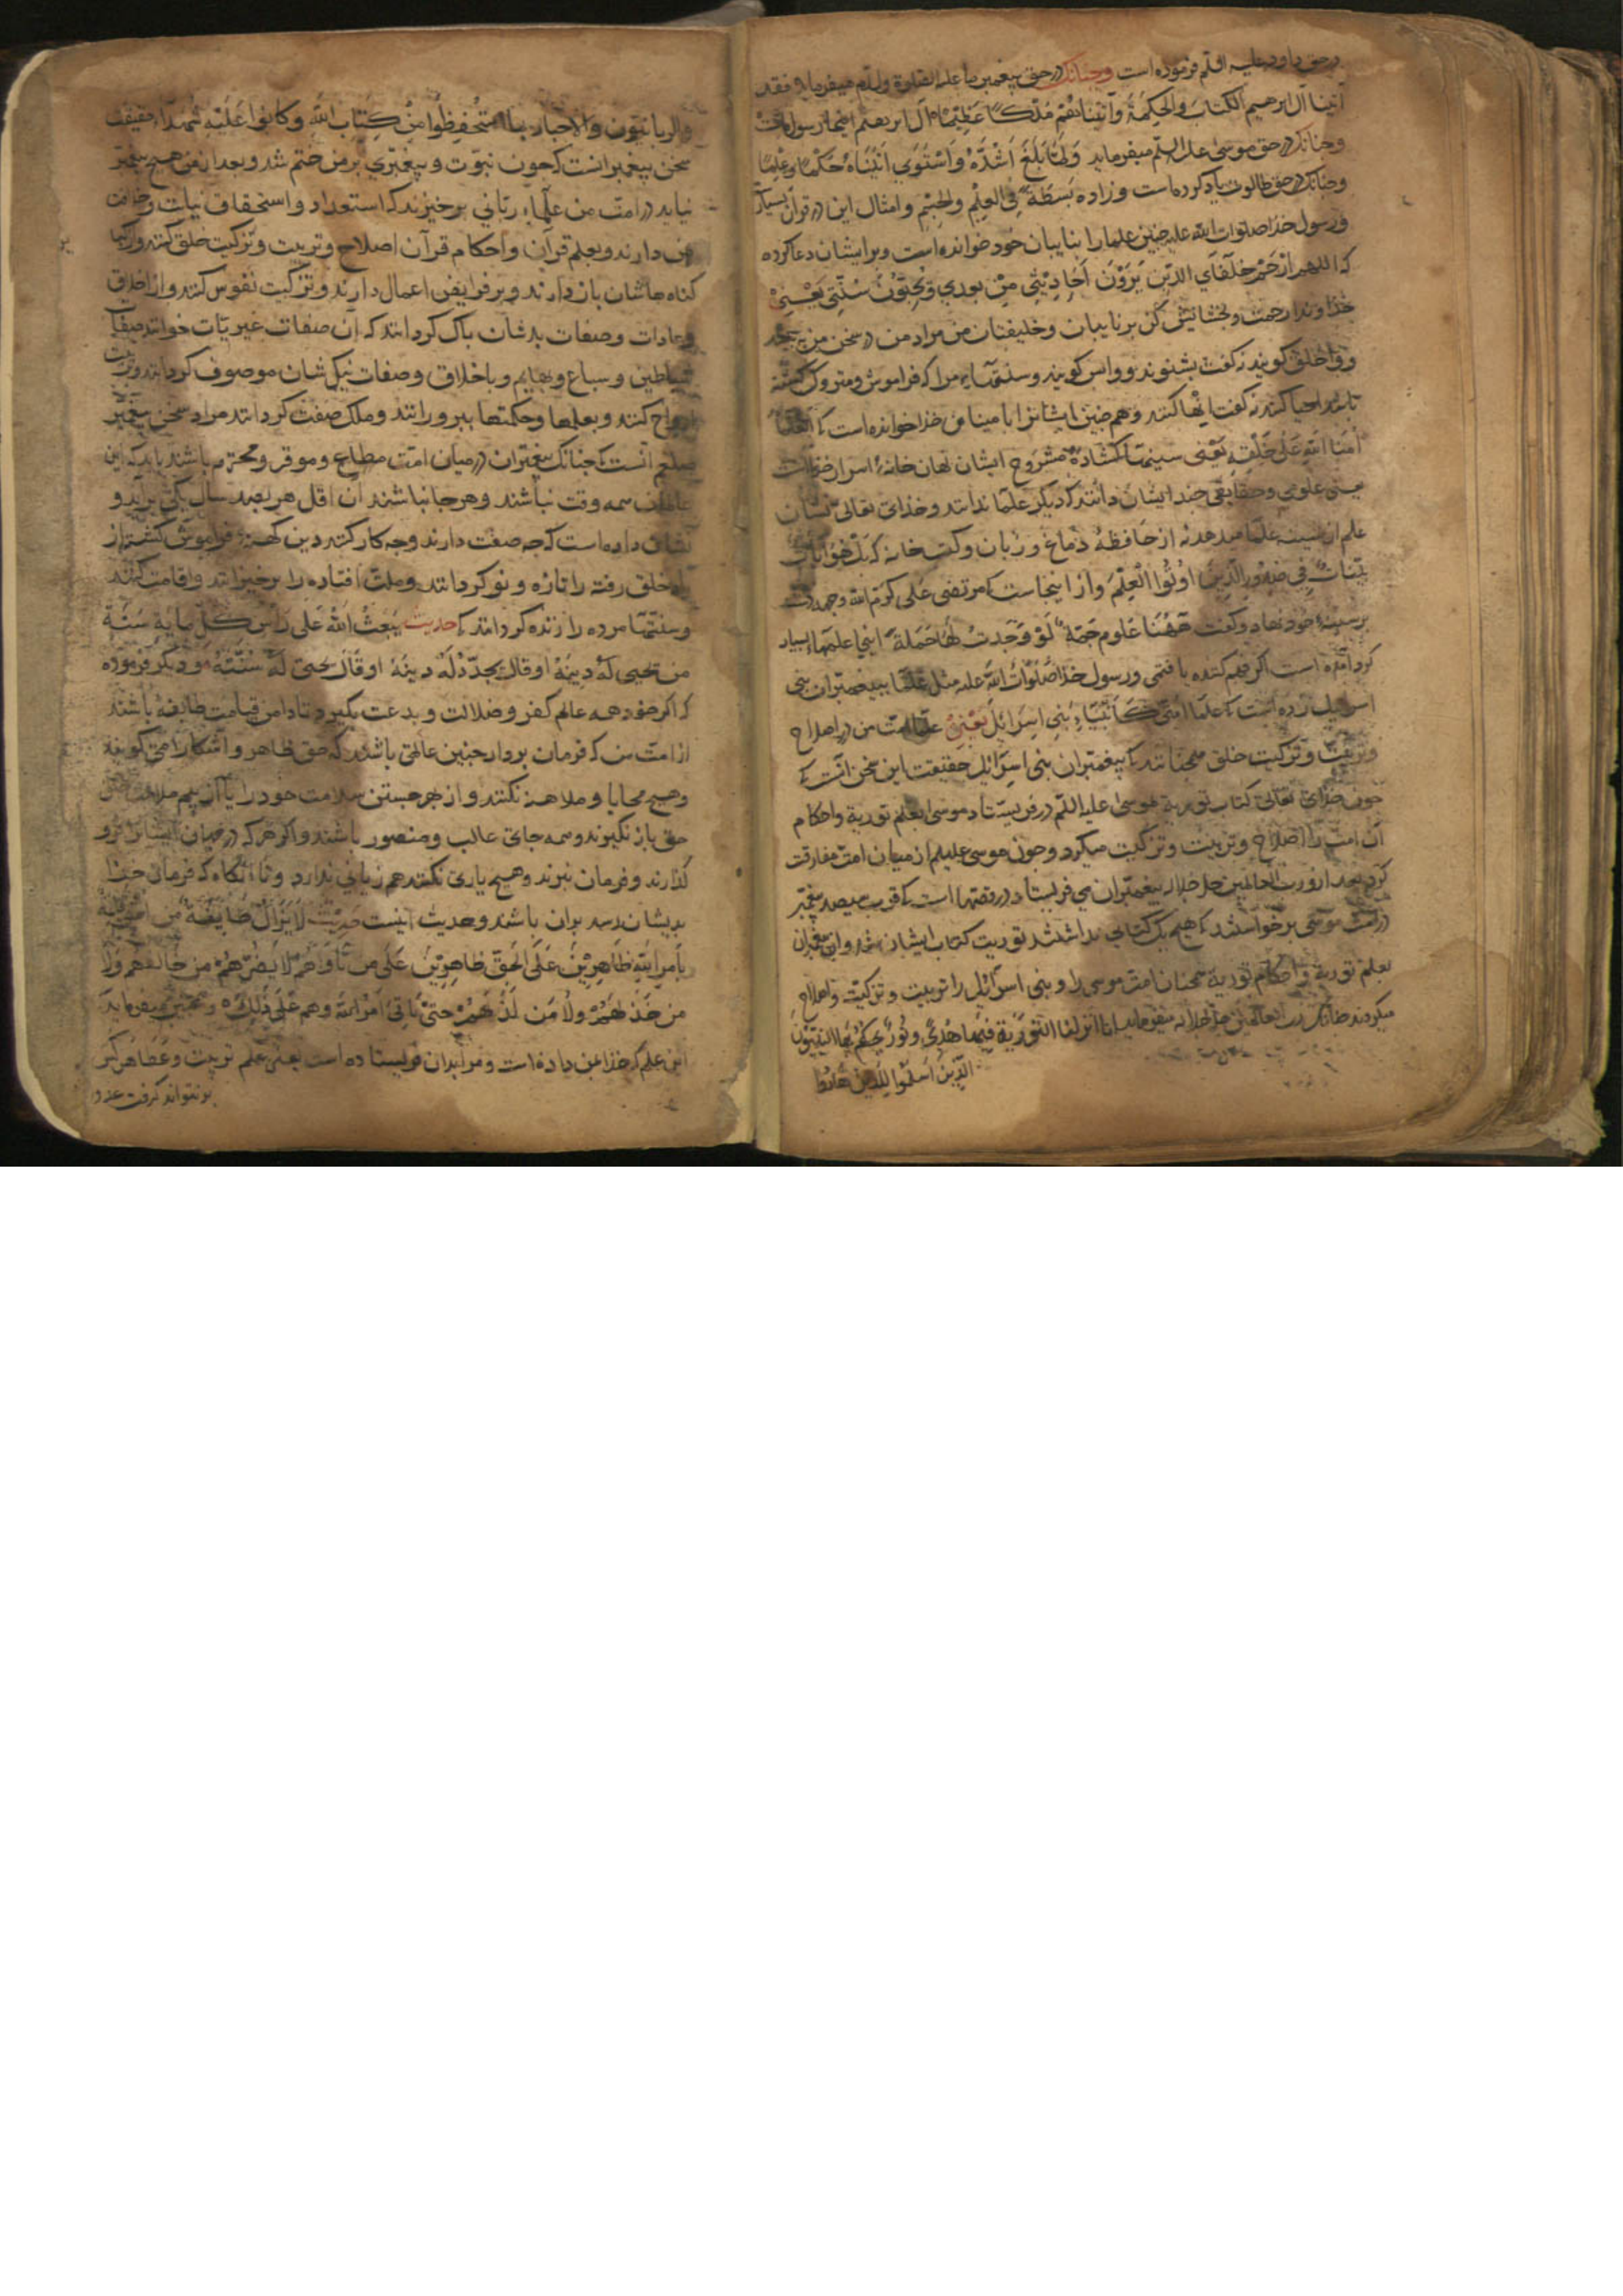 در حق داود علیه السلم فرموده است وجنانک در حق پیغمبر ما علیه الصلوة والسلم میفرماید فقد
آتینا آل ابرهیم الکتاب والحکمة وآتیناهم ملکا عظیما آل ابرهیم اینجا رسول ماست
وجنانک در حق موسی علیه السلم میفرماید ولما بلغ اشده واستوی آتیناه حکما وعلما
وجنانک در حق طالوت یاد کرده است وزاده بسطة فی العلم والجسم وامثال این در قرآن بسیار
ورسول خدا صلوات الله علیه جنین علما را نایبان خود خوانده است وبر ایشان دعا کرده
که اللهم ارحم خلفای الذین یروون احادیثی من بعدی ویحیون سنتی یعنی
خداوندا رحمت وبخشایش کن بر نایبان وخلیفتان من مراد من در سخن من
وواخلق کویند کفت بشنوند وواس کویند وسنتهاء مرا که فراموش ومتروک کشته
باشد احیا کنند کفت اینها کنند وهم جنین ایشانرا بامینان خدا خوانده است که العلما
امنا الله علی خلقه یعنی سینهاء کشاده مشروح ایشان نهان خانهٔ اسرار خداست
یعنی علومی وحقایقی جند ایشان دانند که دیکر علما ندانند وخدای تعالی نشان
علم از سینه علما میدهد نه از حافظه دماغ وزبان وکتب خانه که بل هو آیات
بینات فی صدور الذین اوتوا العلم واز اینجاست که مرتضی علی کرم الله وجهه دست
بر سینهٔ خود نهاد وکفت ههنا علوم جمة لو وجدت لها حملة اینجا علمهاء بسیار
کرد آمده است اکر فهم کننده یافتمی ورسول خدا صلوات الله علیه مثل علما بپیغمبران بنی
اسرایل زده است که علما امتی کانبیاء بنی اسرائل یعنی علما امت من در اصلاح
وتربیت وتزکیت خلق همجنانند که پیغمبران بنی اسرائل حقیقت این سخن آنست که
جون خدای تعالی کتاب توریة بموسی علیه السلم در فرستاد موسی بعلم توریة واحکام
آن امت را اصلاح وتربیت وتزکیت میکرد وجون موسی علیلم از میان امت مفارقت
کرد بعد ازو رب العالمین جل جلاله پیغمبران می فرستاد در قصها است که قرب سیصد پیغمبر
در امت موسی برخواستند که هیج یک کتابی نداشتند توریت کتاب ایشان بود واین پیغمبران
بعلم توریة واحکام توریة همجنان امت موسی را وبنی اسرائل را تربیت وتزکیت واصلاح
میکردند جنانک رب العالمین جل جلاله میفرماید انا انزلنا التوریة فیها هدی ونور یحکم بها النبیون
الذین اسلموا للذین هادوا
والربانیون والاحبار بما استحفظوا من کتاب الله وکانوا علیه شهداء حقیقت
سخن پیغمبر آنست که جون نبوت وپیغمبری بر من ختم شد وبعد از من هیج پیغمبر
نیاید در امت من علماء ربانی برخیزند که استعداد واستحقاق نیابت وخلافت
من دارند وبعلم قرآن واحکام قرآن اصلاح وتربیت وتزکیت خلق کنند واز
کناه هاشان باز دارند وبر فرایض اعمال دارند وتزکیت نفوس کنند واز اخلاق
وعادات وصفات بدشان باک کردانند که آن صفات غیریات خوانند صفات
شیاطین وسباع وبهایم وباخلاق وصفات نیک شان موصوف کردانند وتربیت
ارواح کنند وبعلمها وحکمتها بپرورانند وملک صفت کردانند مراد سخن پیغمبر
صلعم آنست که جنانک پیغمبران در میان امت مطاع وموقر ومحترم باشند باید که این
عالمان همه وقت نباشند وهر جا نباشند آن اقل هر بصد سال یکی بر آید و
نشان داده است که جه صفت دارند وجه کار کنند دین کهنه وفراموش کشته از
یاد خلق رفته را تازه ونو کردانند وملت افتاده را برخیزانند واقامت کنند
وسنتهاء مرده را زنده کردانند که حدیث یبعث الله علی راس کل مایة سنة
من یحیی له دینه او قال یجدد له دینه او قال یحیی له سنته ودیکر فرموده
که اکر خود همه عالم کفر وضلالت وبدعت بگیرد تا دامن قیامت طایفهٔ باشند
از امت من که فرمان بردار جنین عالمی باشند که حق ظاهر وآشکارا می کویند
وهیج محابا ومداهنه نکنند واز بهر جستن سلامت خود را یا از بیم ملامت خلق
حق باز نگیرند وهمه جای غالب ومنصور باشند واکر هرکه در میان ایشانرا فرو
کذارند وفرمان نبرند وهیج یاری نکنند هم زیانی ندارد وتا آنکاه که فرمان خدا
بدیشان رسد بران باشند وحدیث اینست حدیث لا یزال طایفة من امتی قایمة
بامر الله ظاهرین علی الحق ظاهرین علی من ناواهم لا یضرهم من خالفهم ولا
من خذلهم حتی یاتی امر الله وهم علی ذلک وهمجنین میفرماید
این علم که خدا بمن داده است ومرا بدان فرستاده است یعنی علم تربیت
بر نتواند کرفت